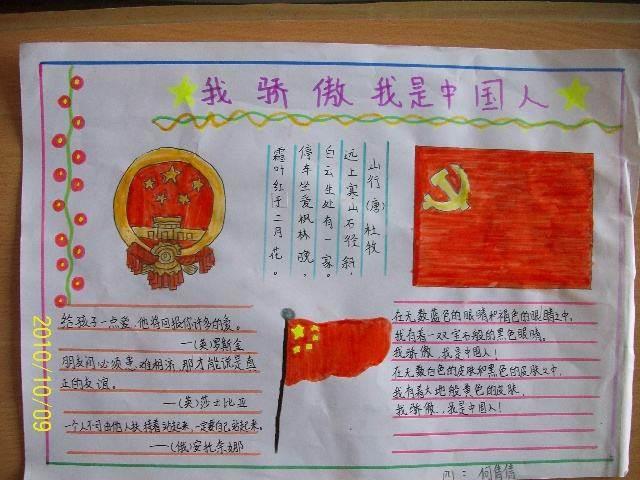 我骄傲我是中国人
山行(唐)杜牧
远上寒山石径斜,
白云生处有一家。
停车坐爱枫林晚,
霜叶红于二月花。
给孩子一点爱,他将回报你许多的爱。
——(英)罗斯金
朋友间必须患难相济,那才能说是真
正的友谊。
——(英)莎士比亚
一个人不可由他人扶持着站起来,一定要自己站起来。
——(俄)安托奈娜
在无数蓝色的眼睛和褐色的眼睛之中,
我有着一双宝石般的黑色眼睛。
我骄傲,我是中国人!
在无数白色的皮肤和黑色的皮肤之中,
我有着大地般黄色的皮肤,
我骄傲,我是中国人!
四:何倩倩
2010/10/09